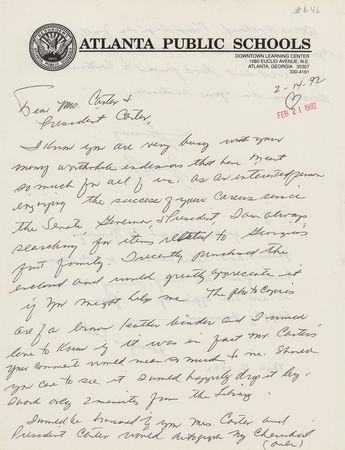 #646
ATLANTA PUBLIC SCHOOLS
DOWNTOWN LEARNING CENTER
1080 EUCLID AVENUE, N.E.
ATLANTA, GEORGIA 30307
330-4161
2-14-92
FEB 21 1992
Dear Mrs. Carter &
President Carter,
I know you are very busy with your
many worthwhile endeavors that have meant
so much for all of us. As an interested person
enjoying the success of your careers since
the Senate, Governor, & President I am always
searching for items related to Georgia's
first family. I recently purchased the
enclosed and would greatly appreciate it
if you might help me. The photocopies
are of a brown leather binder and I would
love to know if it was in fact Mr. Carter's
your comment would mean so much to me. Should
you care to see it I would happily drop it by.
I work only 2 minutes from the Library.
I would be honored if you Mrs. Carter and
President Carter would autograph my cherished
(over)